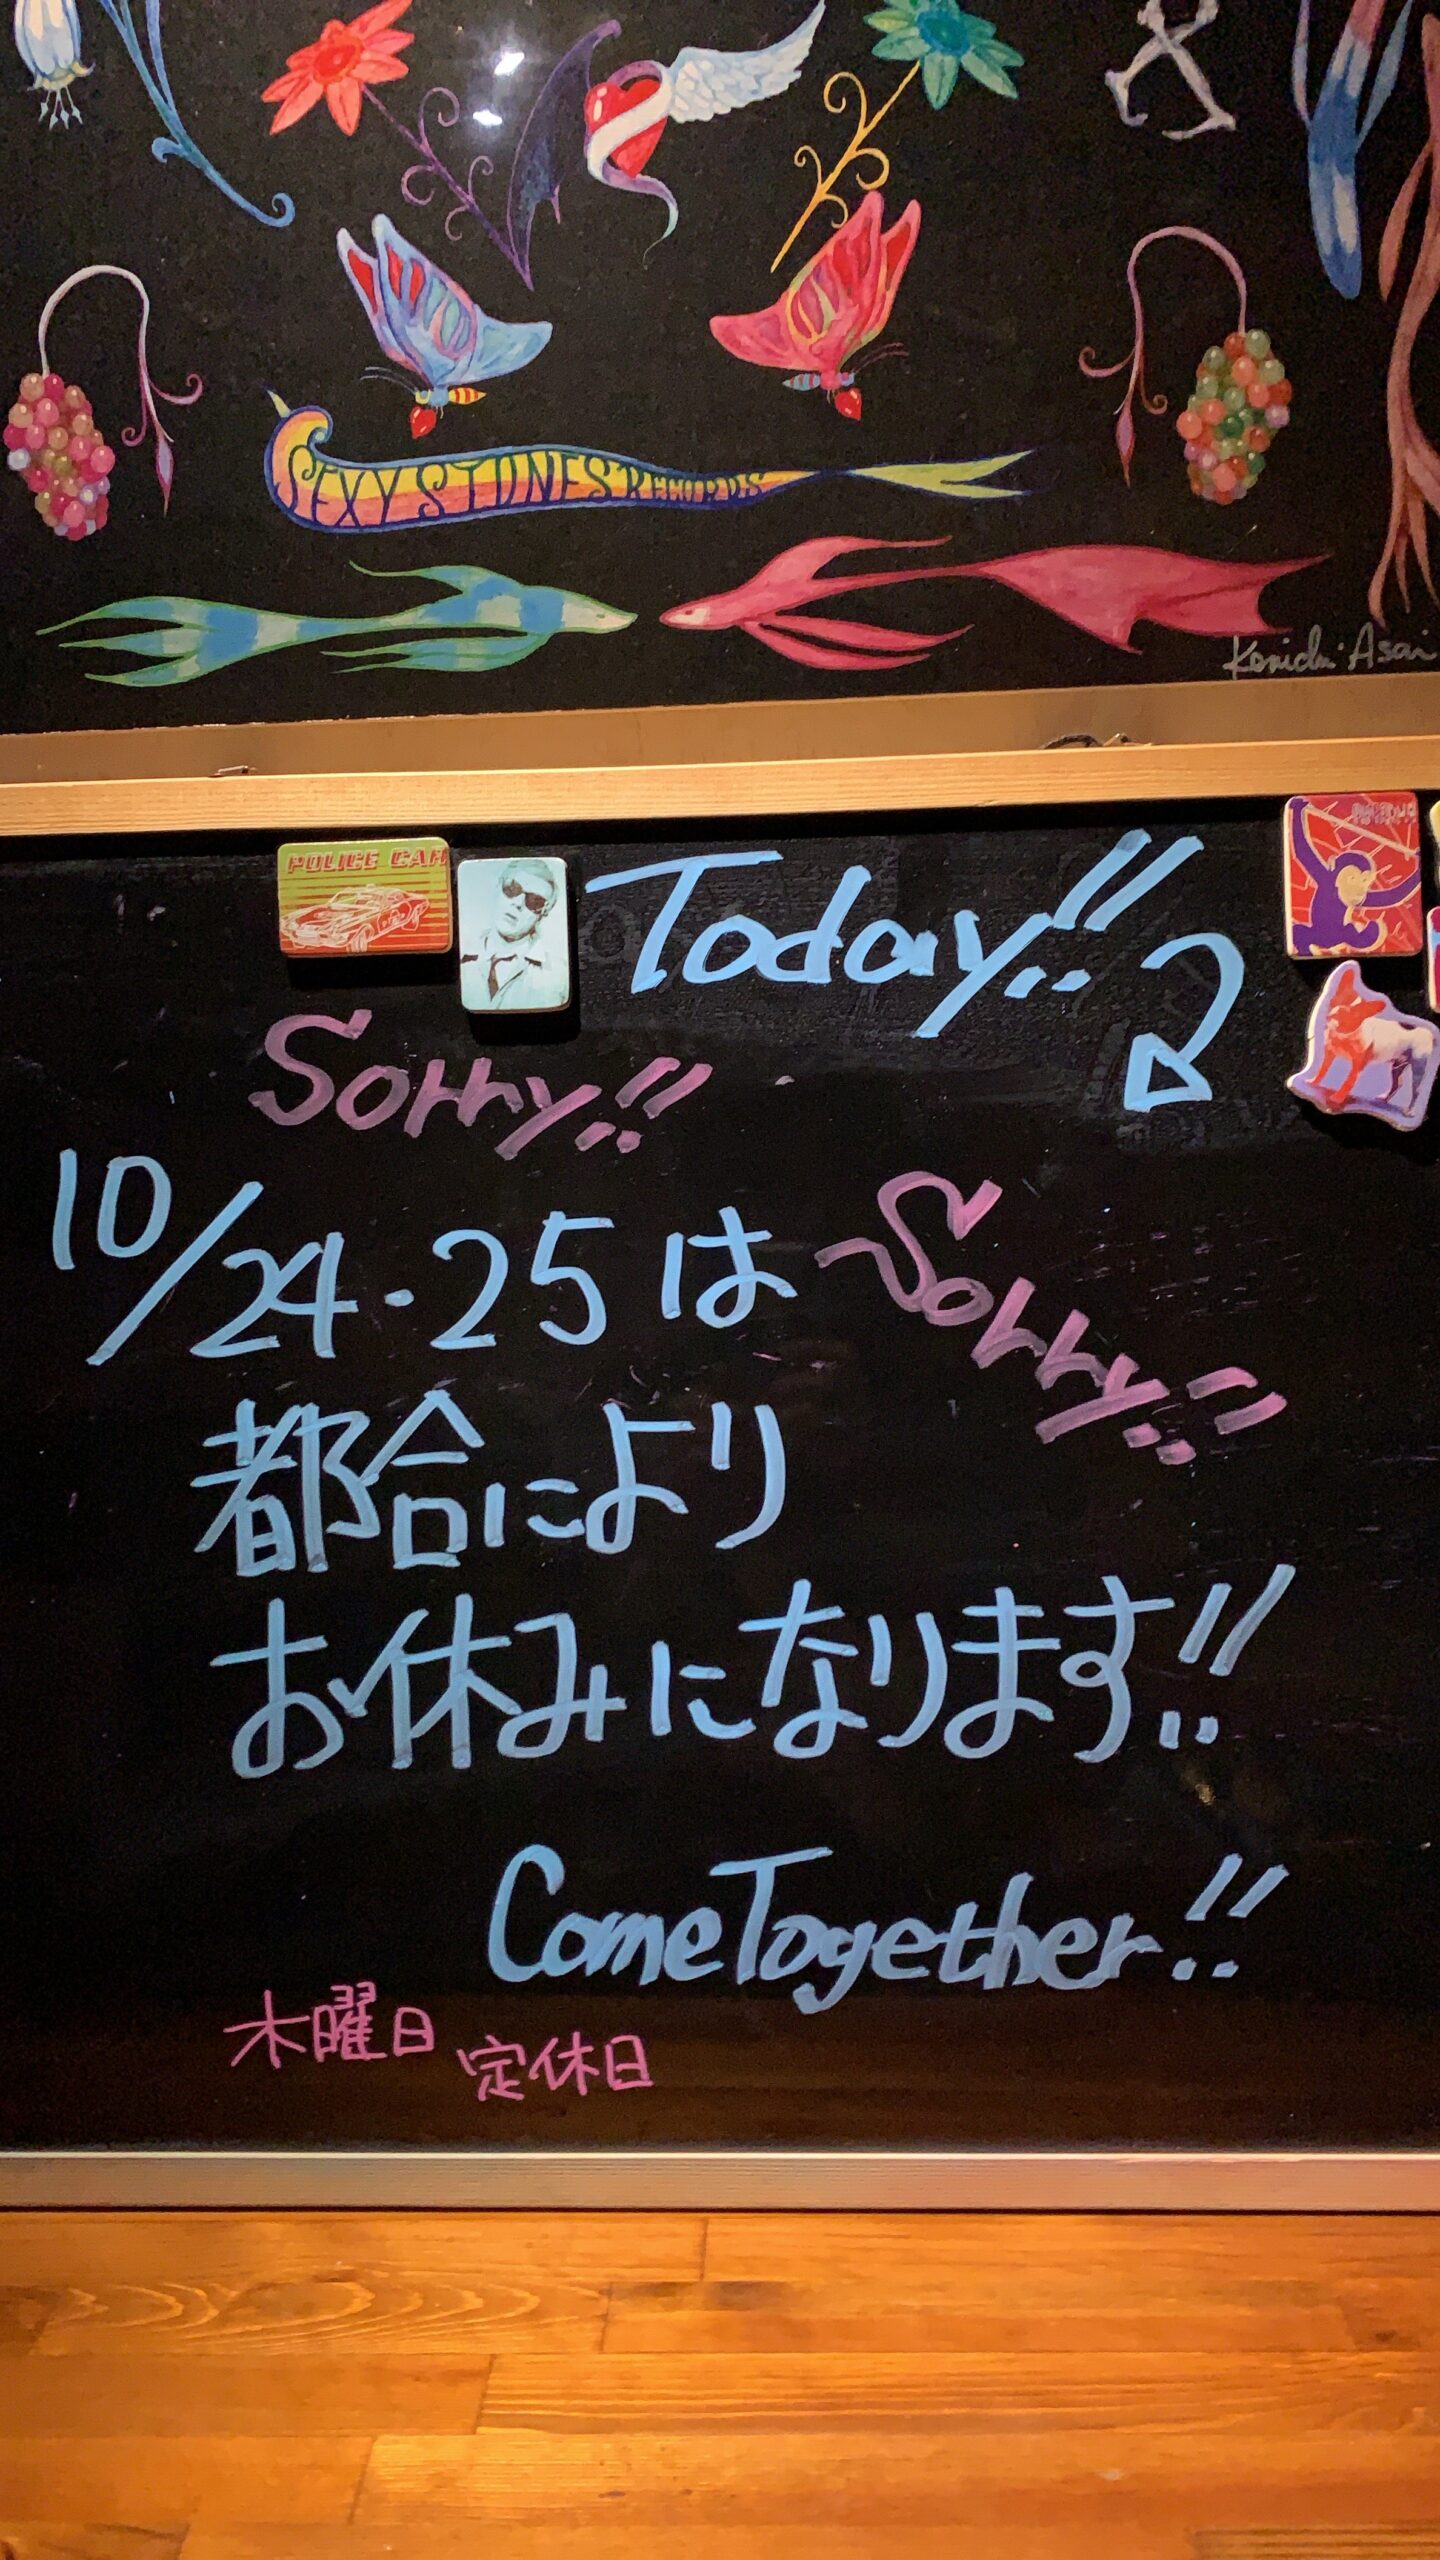 SEXY STONES RECORDS
Kenichi Asai
POLICE CAR
Today!!
Sorry!!
10/24・25は
Sorry!!
都合により
お休みになります!!
Come Together!!
木曜日 定休日